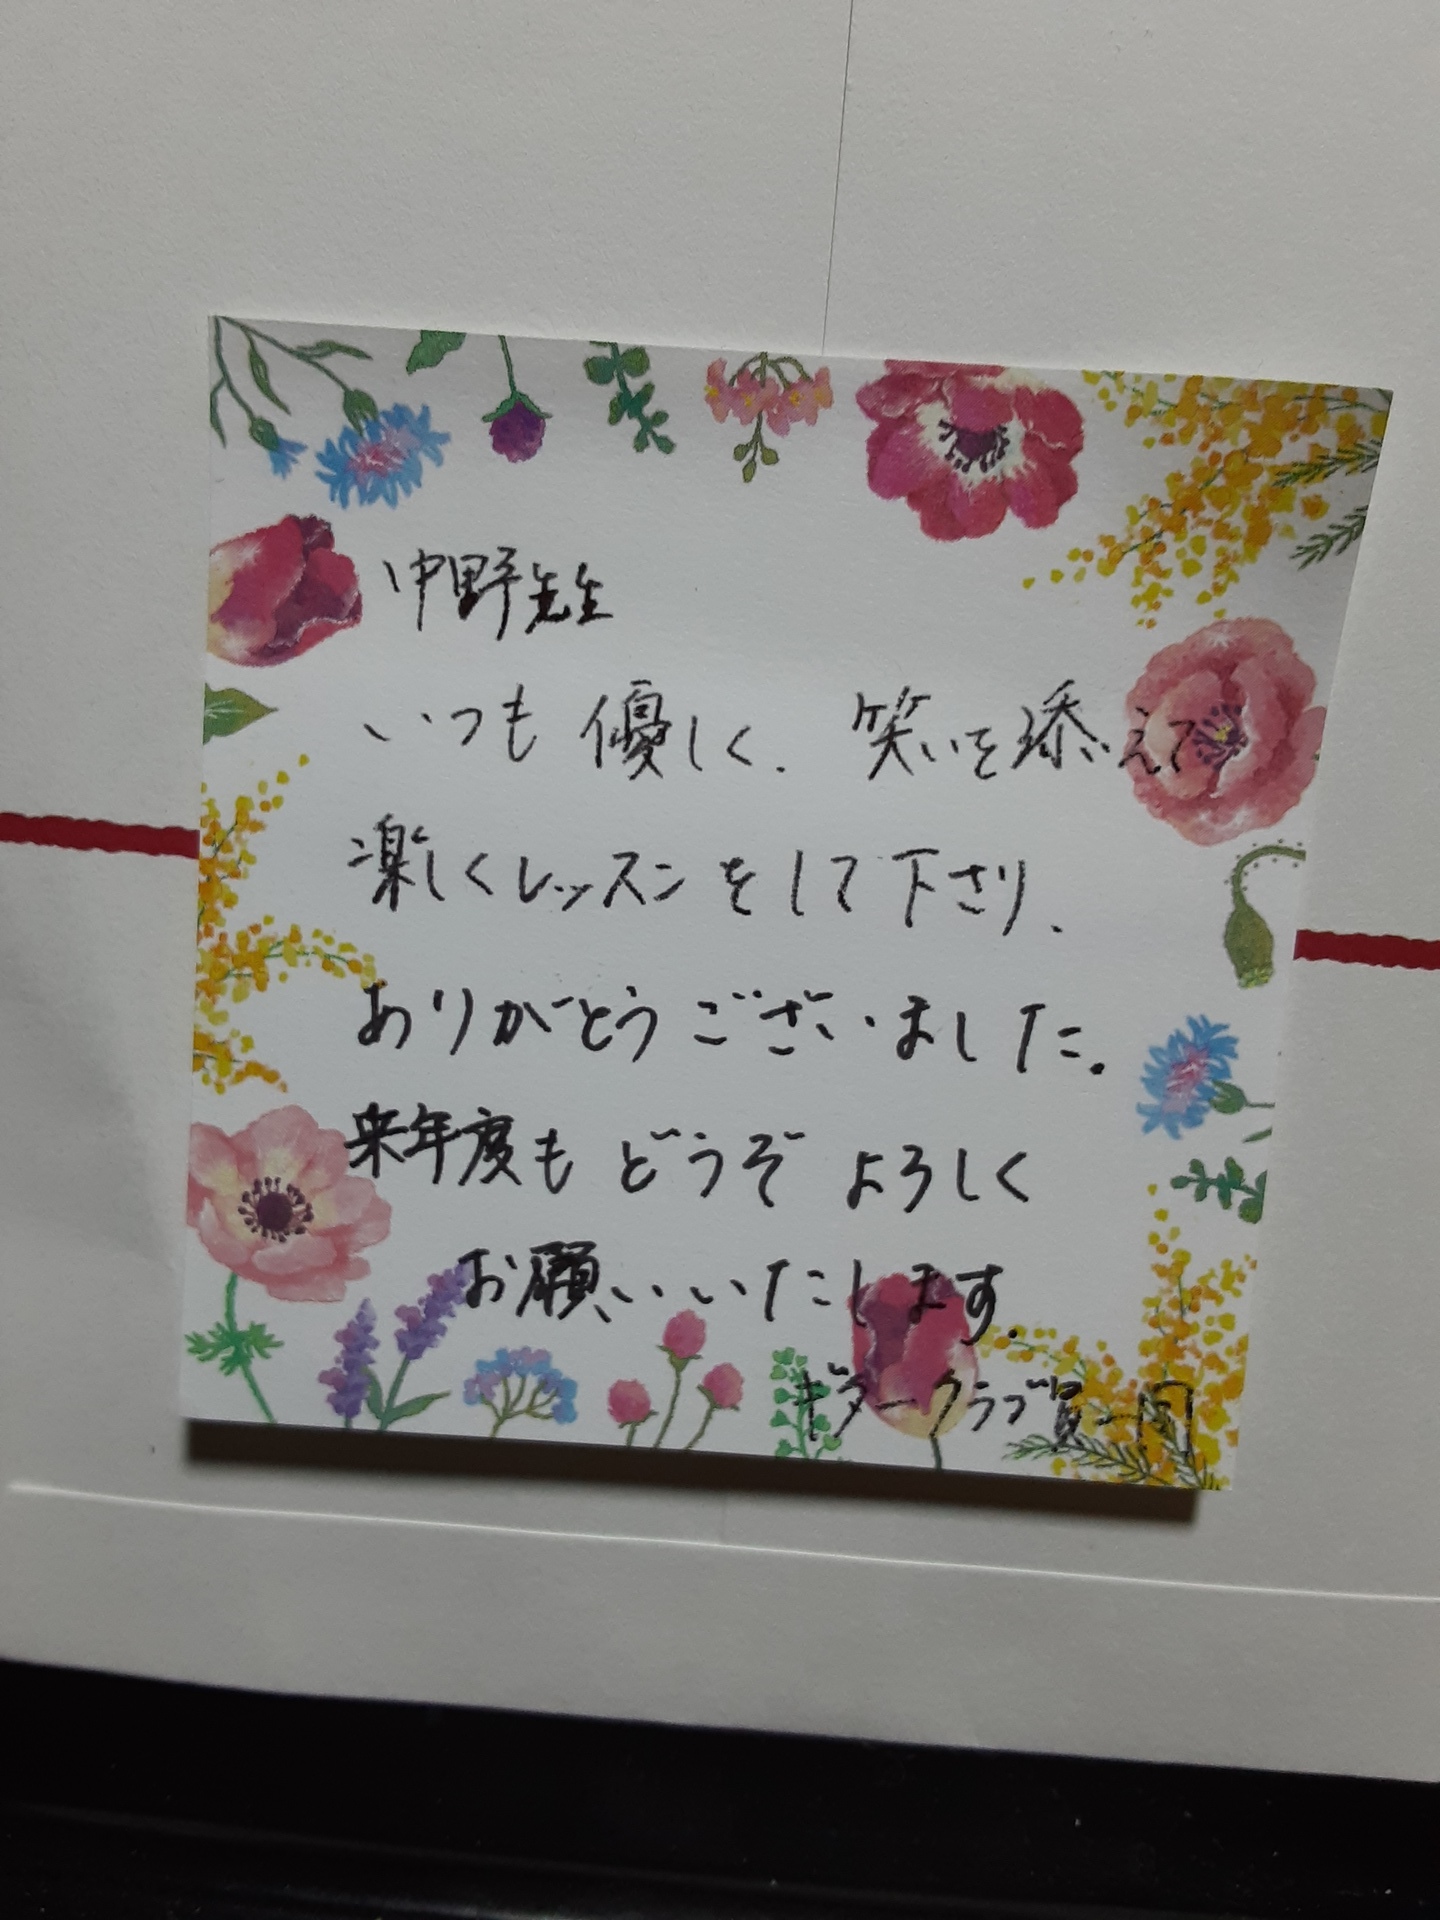 中野先生
いつも優しく、笑いを添えて
楽しくレッスンをして下さり、
ありがとうございました。
来年度もどうぞよろしく
お願いいたします。
ギタークラブ員一同